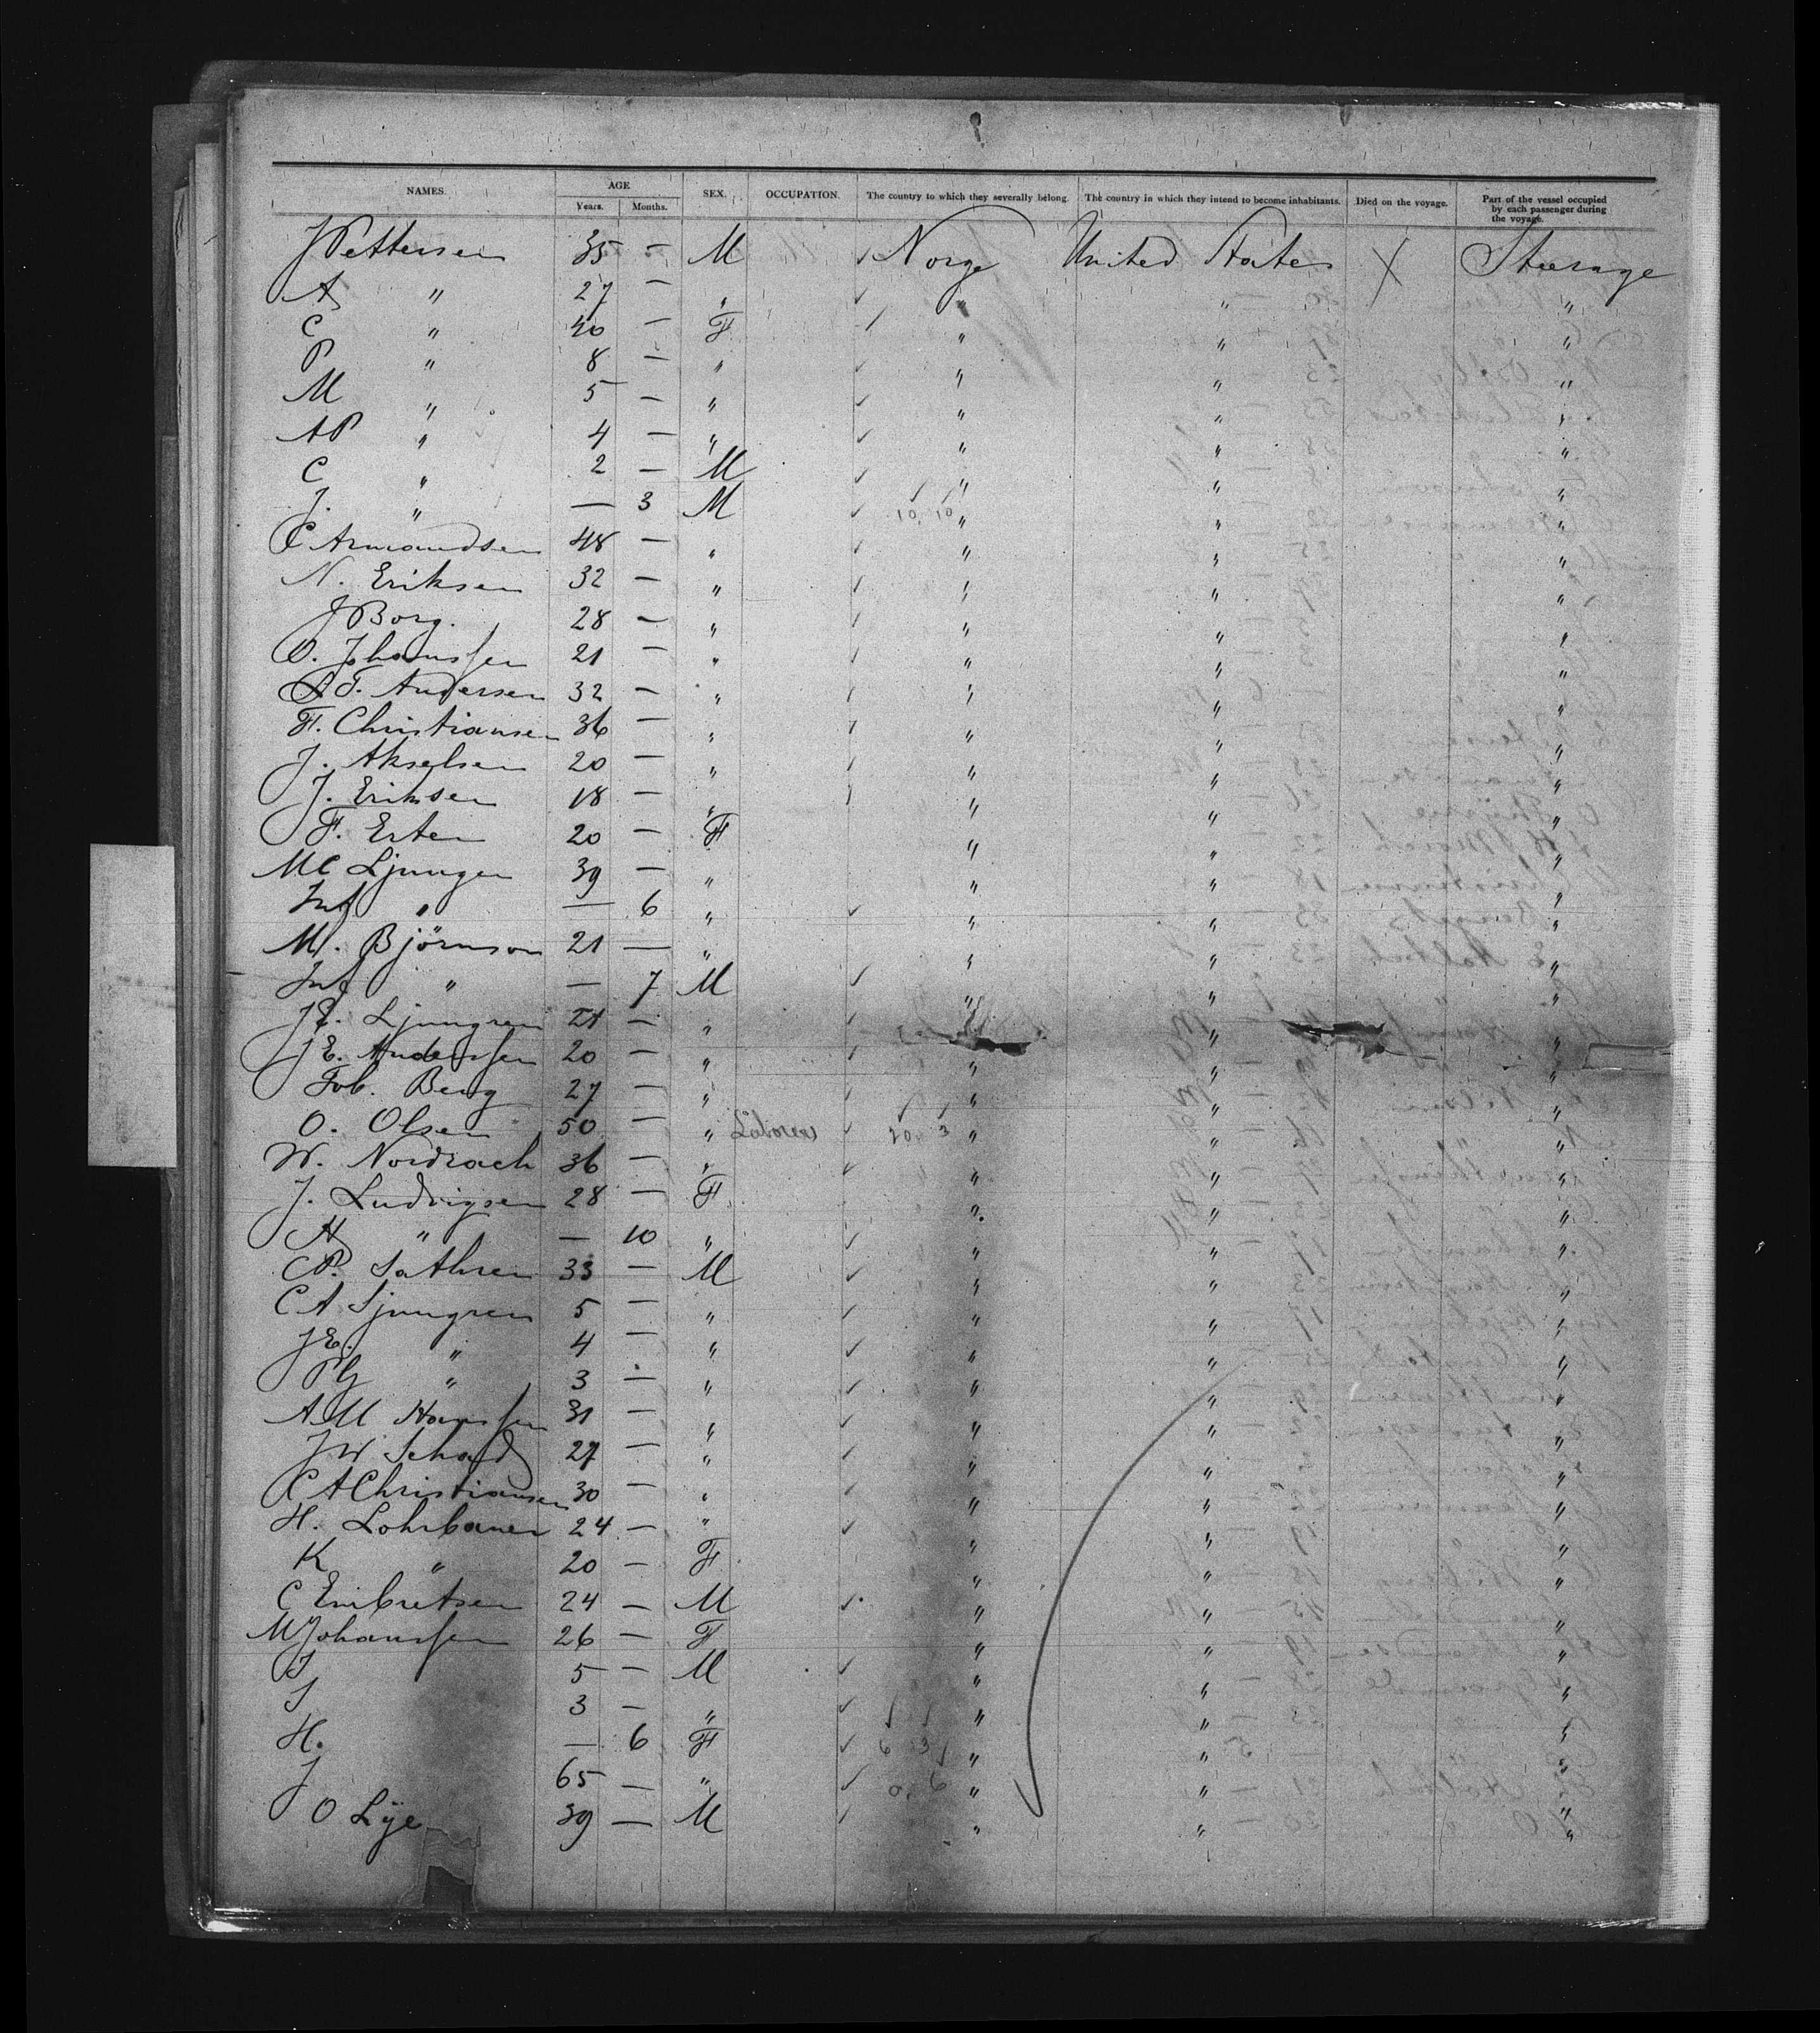 NAMES. AGE Years. Months. SEX. OCCUPATION. The country to which they severally belong. The country in which they intend to become inhabitants. Died on the voyage. Part of the vessel occupied by each passenger during the voyage.
J Pettersen 35 — M Norge United States X Steerage
A " 27 — " " " "
C " 40 — F " " "
P " 8 — " " " "
M " 5 — " " " "
AP " 4 — " " " "
C " 2 — M " " "
J. " — 3 M 10, 10 " " "
C Armandsen 48 — " " " "
N. Eriksen 32 — " " " "
J Borg. 28 — " " " "
O. Johanssen 21 — " " " "
A T. Andersen 32 — " " " "
F. Christiansen 36 — " " " "
J. Akselsen 20 — " " " "
J. Eriksen 18 — " " " "
F. Erten 20 — F " " "
MC Ljungen 39 — " " " "
Inf " — 6 " " " "
M. Björnson 21 — " " " "
Inf " — 7 M " " "
JE. Ljungren 21 — " " " "
JE. Anderssen 20 — " " " "
Tob. Berg 27 — " " " "
O. Olsen 50 — " Laborers 20, 3 " " "
W. Nordrach 36 — " " " "
J. Ludvigsen 28 — F " " "
A " — 10 " " " "
CP. Sathren 33 — M " " "
C A Ljungren 5 — " " " "
JE. " 4 — " " " "
Pg " 3 — " " " "
AM Hanssen 31 — " " " "
JW Schad 27 — " " " "
C A Christiansen 30 — " " " "
H. Lohrbauer 24 — " " " "
K " 20 — F " " "
C Embretsen 24 — M " " "
M Johanssen 26 — F " " "
J 5 — M " " "
J 3 — " " " "
H. — 6 F 6 3 " " "
J 65 — " 0, 6 " " "
O Lye 39 — M " " "